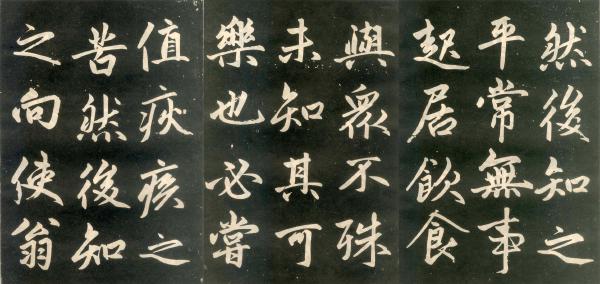 然後知之
平常無事
起居飲食
與眾不殊
未知其可
樂也必嘗
值疢疾之
苦然後知
之向使翁